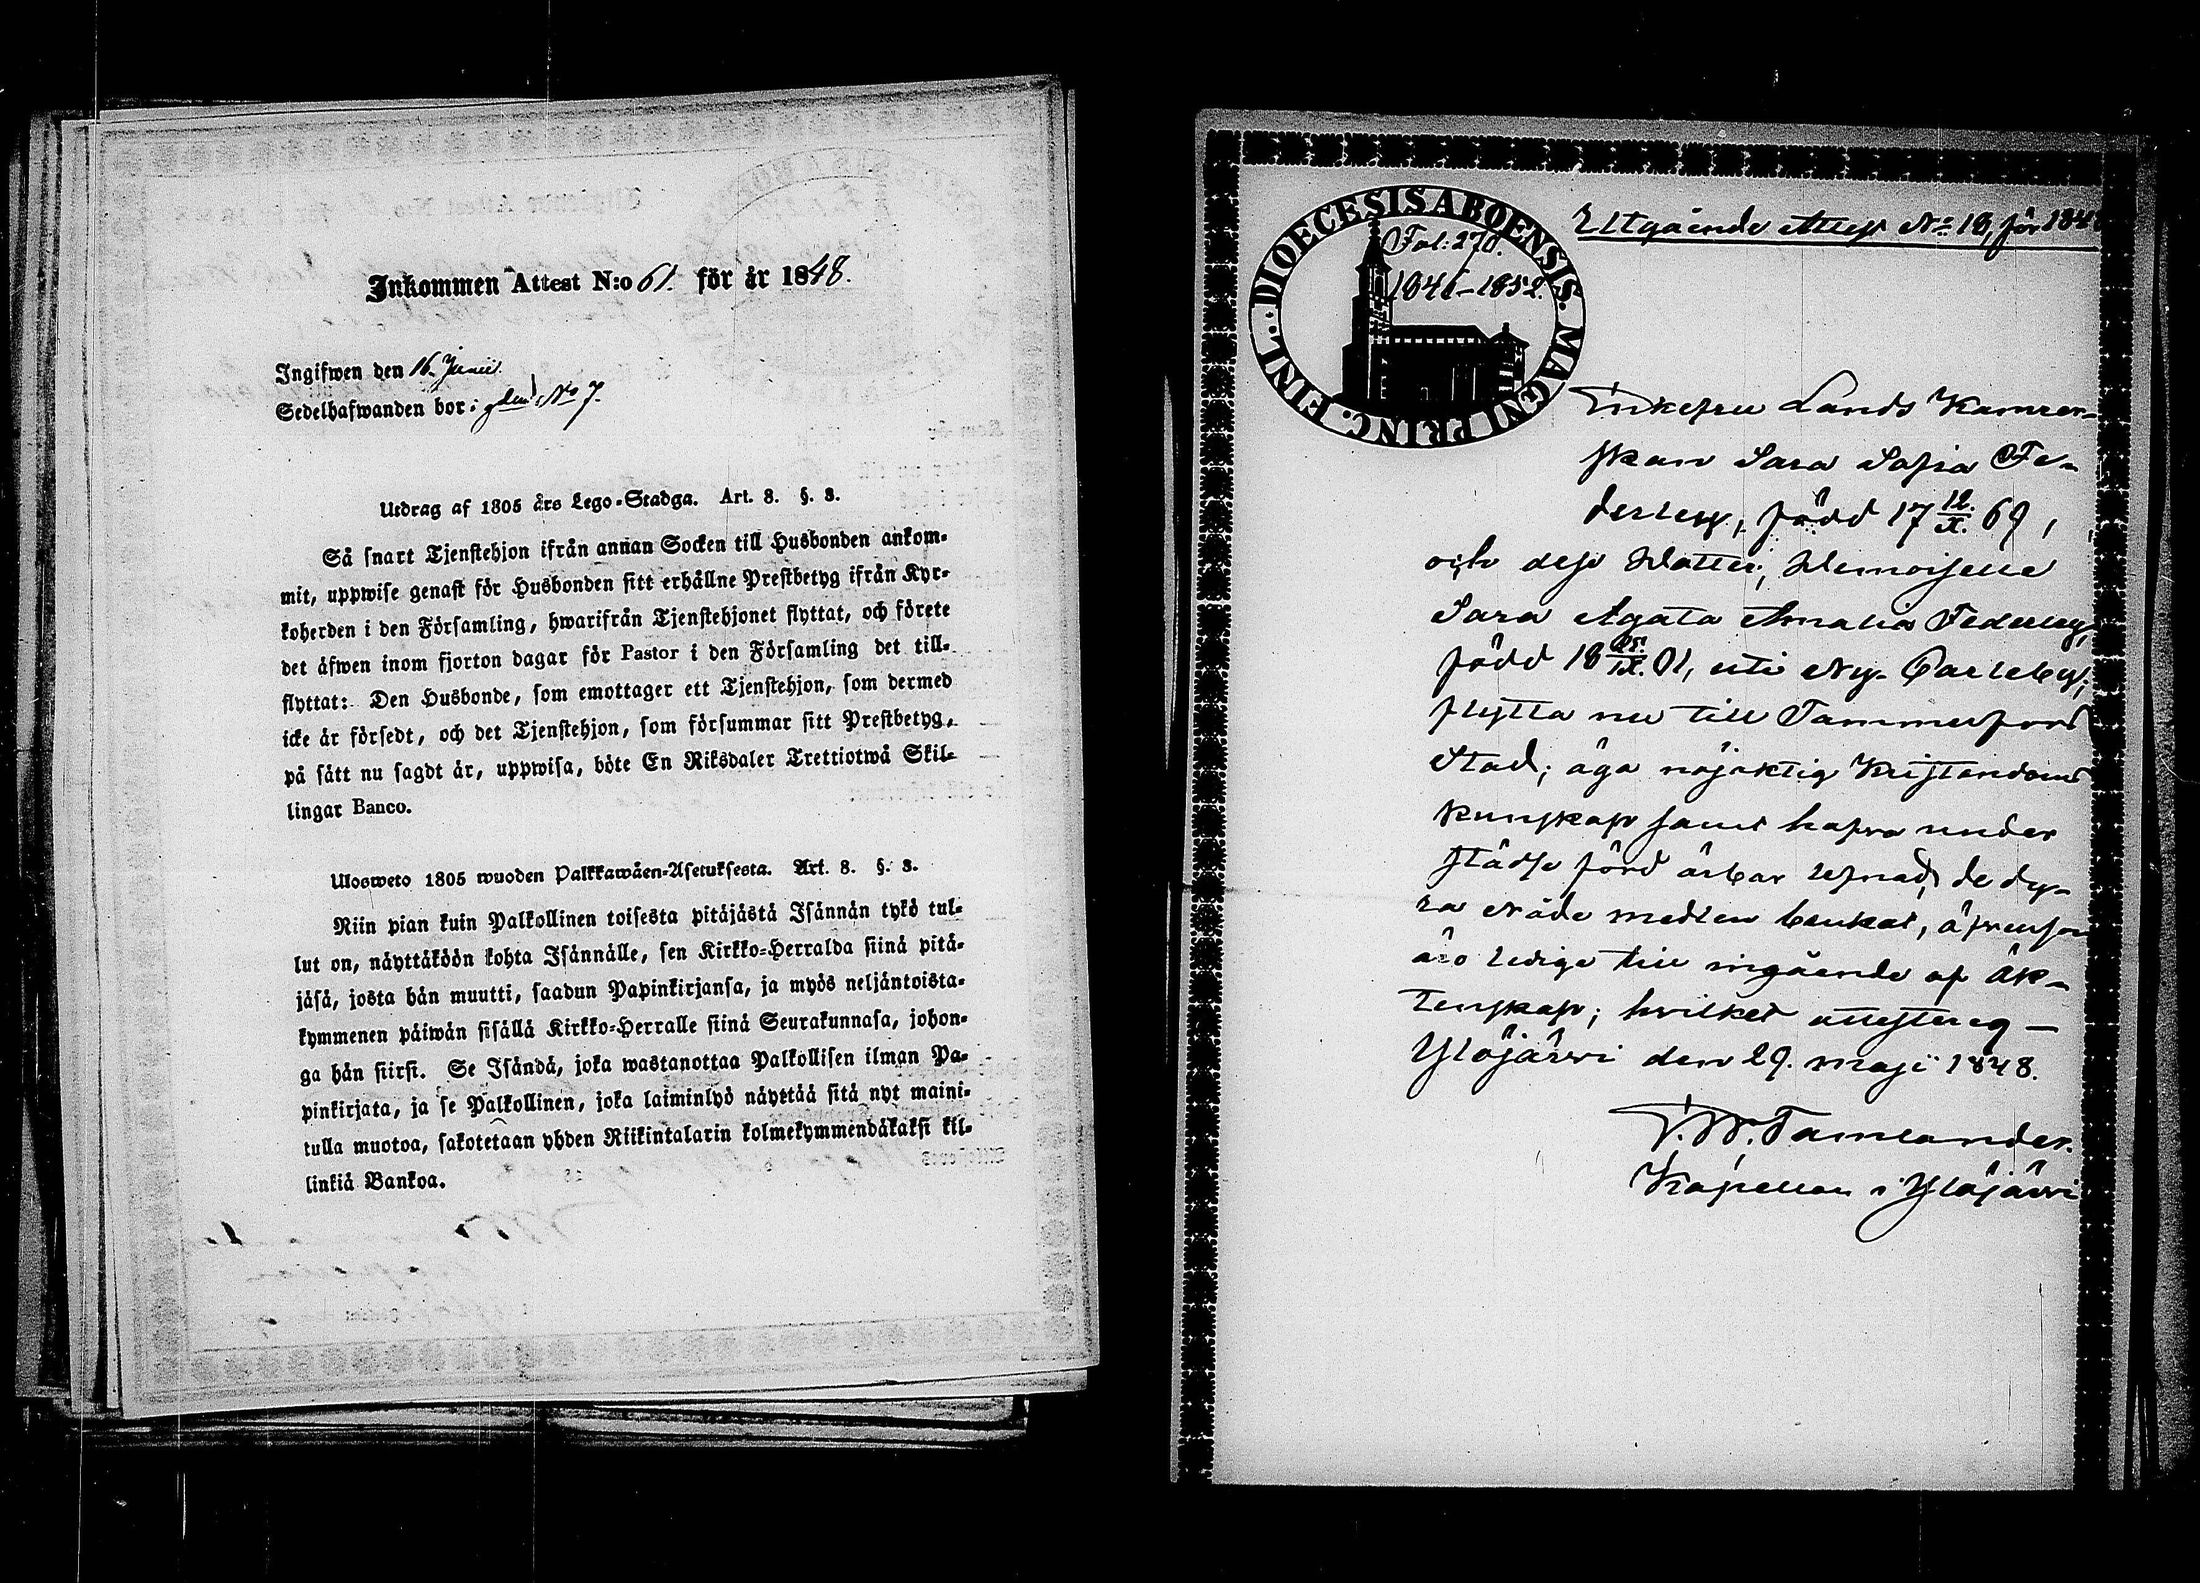 Inkommen Attest N:o 61. för år 1848.
Ingifwen den 16 Junii.
Sedelhafwanden bor i gden No 7.
Utdrag af 1805 års Lego-Stadga. Art. 8. §. 3.
Så snart Tjenstehjon ifrån annan Socken till Husbonden ankom-
mit, uppwise genast för Husbonden sitt erhållne Prestbetyg ifrån Kyr-
koherden i den Församling, hwarifrån Tjenstehjonet flyttat, och förete
det äfwen inom fjorton dagar för Pastor i den Församling det till-
flyttat: Den Husbonde, som emottager ett Tjenstehjon, som dermed
icke är försedt, och det Tjenstehjon, som försummar sitt Prestbetyg,
på sätt nu sagdt är, uppwisa, böte En Riksdaler Trettiotwå Skil-
lingar Banco.
Ulosweto 1805 wuoden Palkkawäen-Asetuksesta. Art. 8. §. 3.
Niin pian kuin Palkollinen toisesta pitäjästä Isännän tykö tul-
lut on, näyttäköön kohta Isännälle, sen Kirkko-Herralda siinä pitä-
jäsä, josta hän muutti, saadun Papinkirjansa, ja myös neljäntoista-
kymmenen päiwän sisällä Kirkko-Herralle siinä Seurakunnasa, johon-
ga hän siirsi. Se Isändä, joka wastanottaa Palkollisen ilman Pa-
pinkirjata, ja se Palkollinen, joka laiminlyö näyttää sitä nyt maini-
tulla muotoa, sakotetaan yhden Riikintalarin kolmekymmendäkaksi kil-
linkiä Bankoa.
DIOECESIS ABOENSIS. MAGNI PRINC. FINL.
Fol: 270.
1846-1852.
Utgående Attest No 18, för 1848
Enkefru Lands Kamrer-
skan Sara Sofia Fe-
derley, född 17 12/X. 69,
och dess Dotter, Demoiselle
Sara Agata Amalia Federley,
född 18 25/IX. 01, uti Ny-Carleby,
flytta nu till Tammerfors
Stad; äga nöjaktig Kristendoms
kunskap samt hafva under
städse förd ärbar lefnad, de dy-
ra Nåde medlen beukat, äfvensom
äro ledige till ingående af äk-
tenskap; hvilket attesteras –
Ylöjärvi den 29. Maji 1848.
F. W. Tamlander.
Kapellan i Ylöjärvi